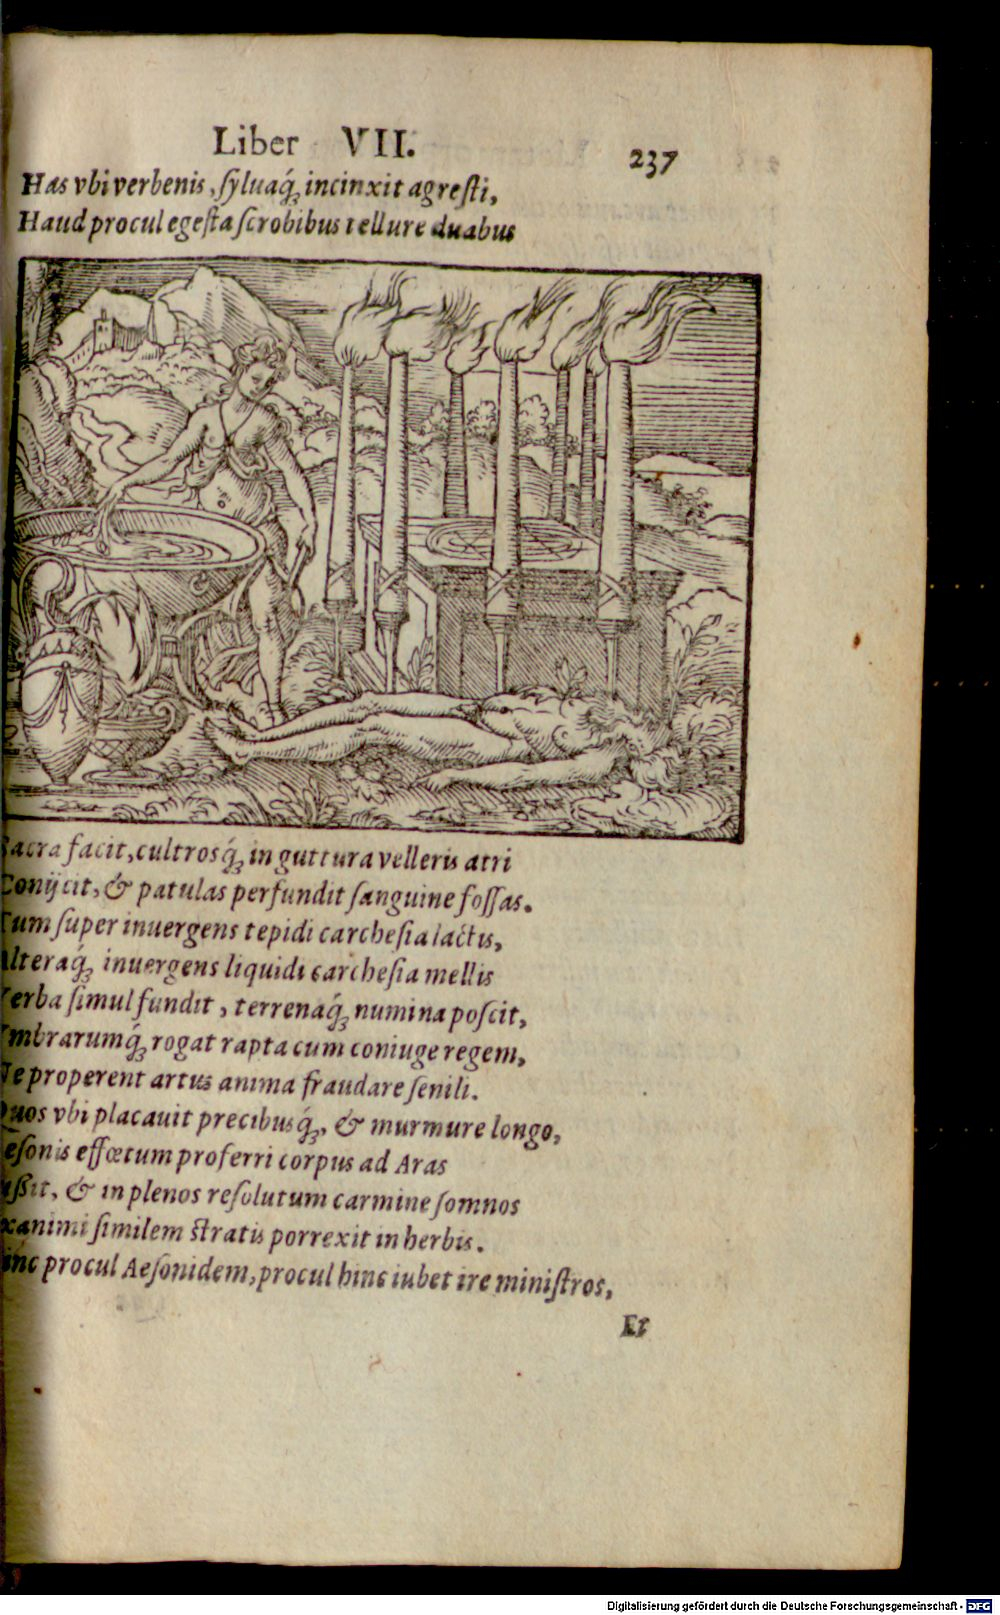 Liber VII. 237
Has vbi verbenis, ſyluaq́; incinxit agreſti,
Haud procul egeſta ſcrobibus tellure duabus
Sacra facit, cultrosq́; in guttura velleris atri
Conijcit, & patulas perfundit ſanguine foſſas.
Tum ſuper inuergens tepidi carcheſia lactis,
Alteraq́; inuergens liquidi carcheſia mellis
Verba ſimul fundit, terrenaq́; numina poſcit,
Vmbrarumq́; rogat rapta cum coniuge regem,
Ne properent artus anima fraudare ſenili.
Quos vbi placauit precibusq́;, & murmure longo,
Aeſonis effœtum proferri corpus ad Aras
Iußit, & in plenos reſolutum carmine ſomnos
Exanimi ſimilem ſtratis porrexit in herbis.
Hinc procul Aeſonidem, procul hinc iubet ire miniſtros,
Et
Digitalisierung gefördert durch die Deutsche Forschungsgemeinschaft - DFG